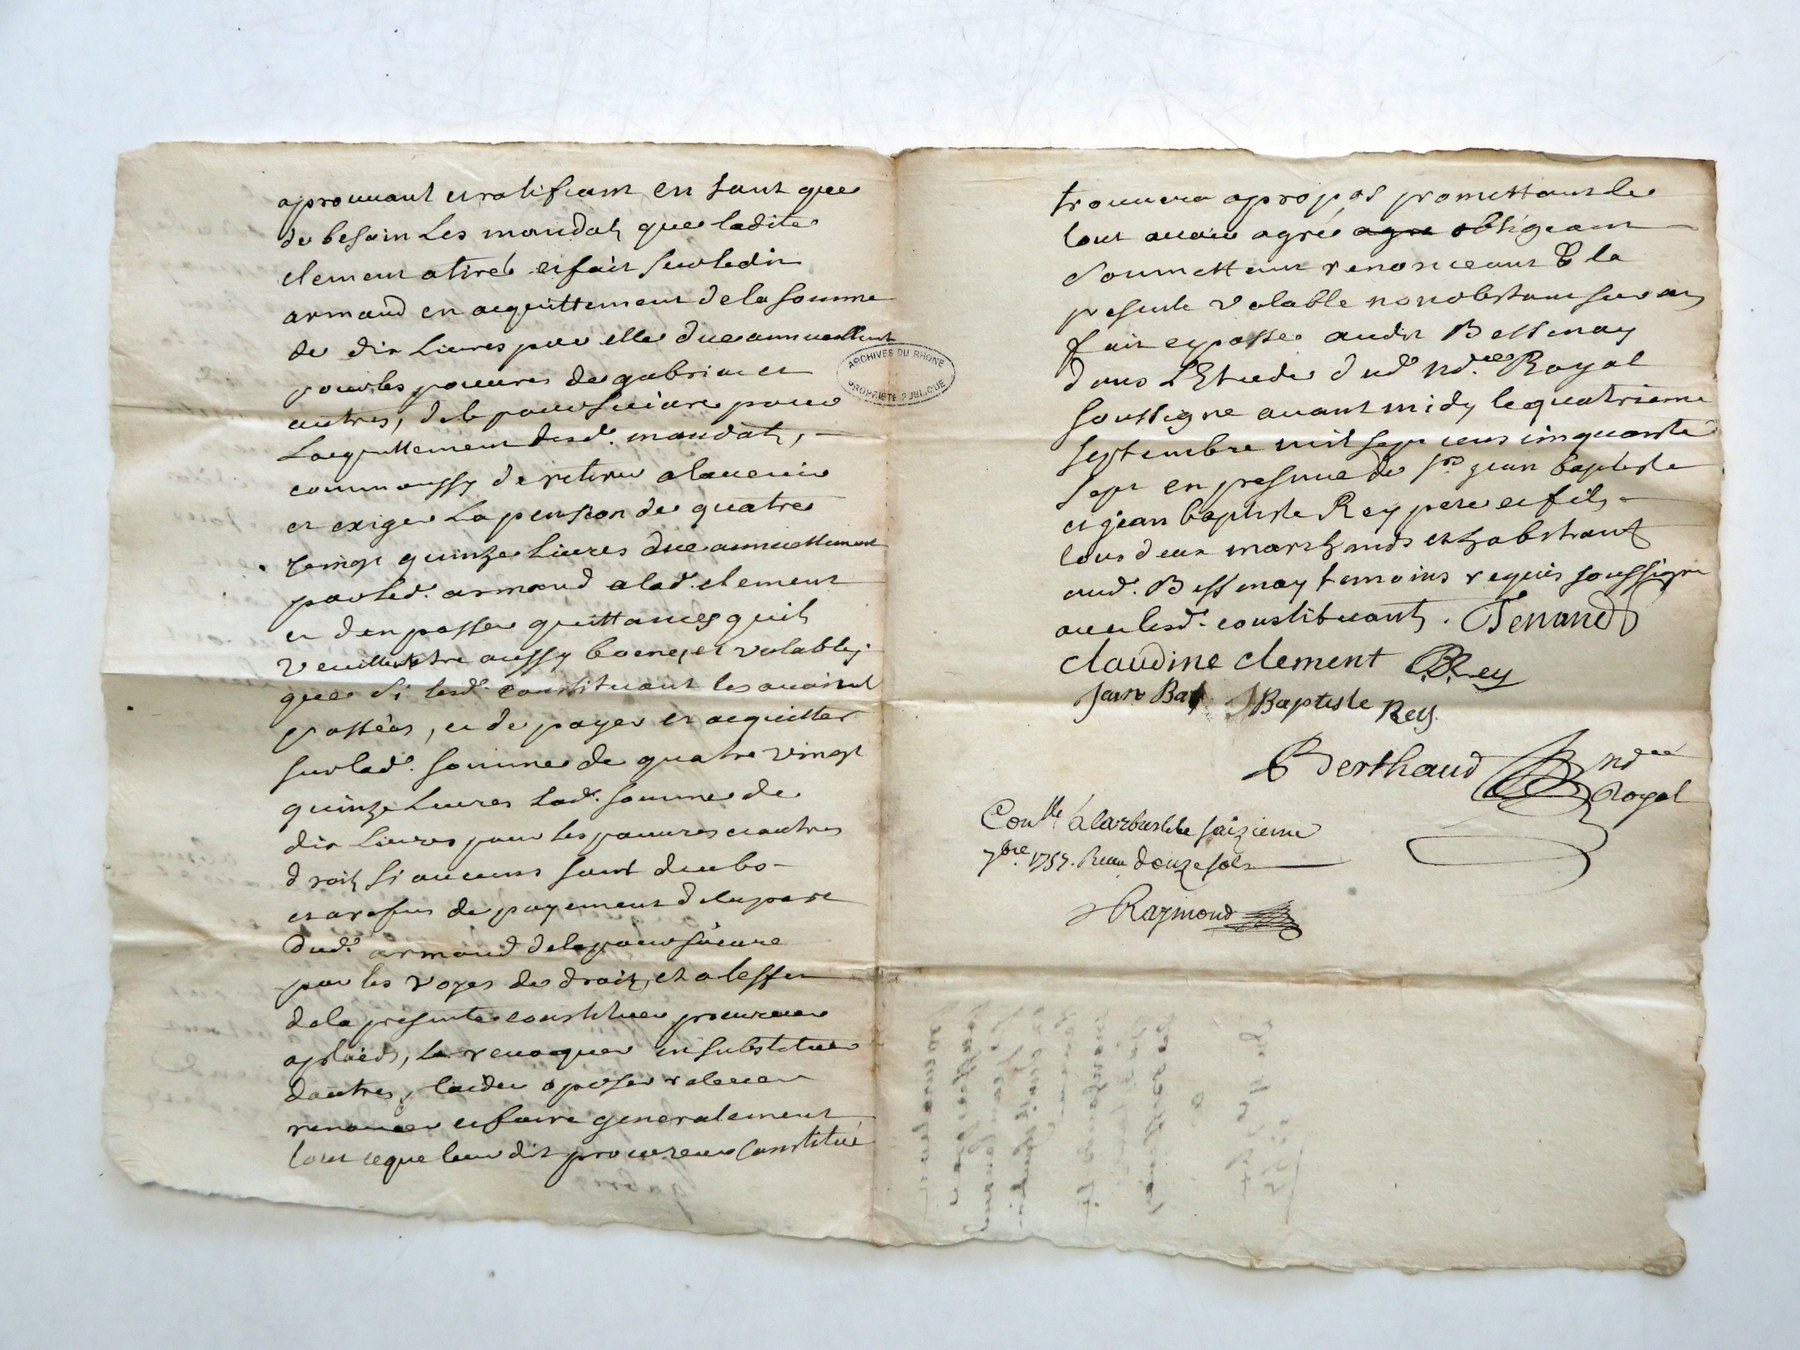 aprouvant et ratifiant en tant que
de besoin Les mandats que ladite
clement a tiré et fait sur ledit
armand en acquittement de la somme
de dix Livres par elle due annuellement
pour les pauvres de gabriac et
autres, de le poursuivre pour
Lacquittement desd. mandats,
comm aussy de retirer a lavenir
et exiger La pension de quatre
vingt quinze Livres due annuellement
par led. armand a lad. clement
et den passer quittances quils
veuillent etre aussy bonnes et valables
que si lesd. constituant les avoint
passées, et de payer et acquitter
sur lad. somme de quatre vingt
quinze Livres Lad. somme de
dix Livres pour les pauvres et autres
droits si aucuns sont deubs
et a refus de payement de la part
Dud. armand de le poursuivre
par les voyes de droit, et a leffet
de la presente constituer procureur
a plaids, Le revoquer en substituer
dautres, plaider oposer relever
renoncer et faire generalement
tout ce que leur dit procureur Constitué
ARCHIVES DU RHONE
PROPRIÉTÉ PUBLIQUE
trouvera apropos promettant le
tout avoir agréé agre obligeant
Soumettant renonceant & la
presente valable nonobstant suran
fait et passé audit Bessenay
dans LEtude dud. Nd.re Royal
soussigne avant midy le quatrieme
septembre mil sept cens cinquante
sept en presence de srs jean baptiste
et jean baptiste Rey pere et fils
tous deux marchands et habitants
aud. Bessenay temoins requis soussigne
avec lesd. constituants. Tenand
claudine clement JBRey
Jean Bap Baptiste Rey
Berthaud Nd.re
Royal
Con.lle a larbresle le saizieme
7bre. 1757. Reçu douze sols
Raymond